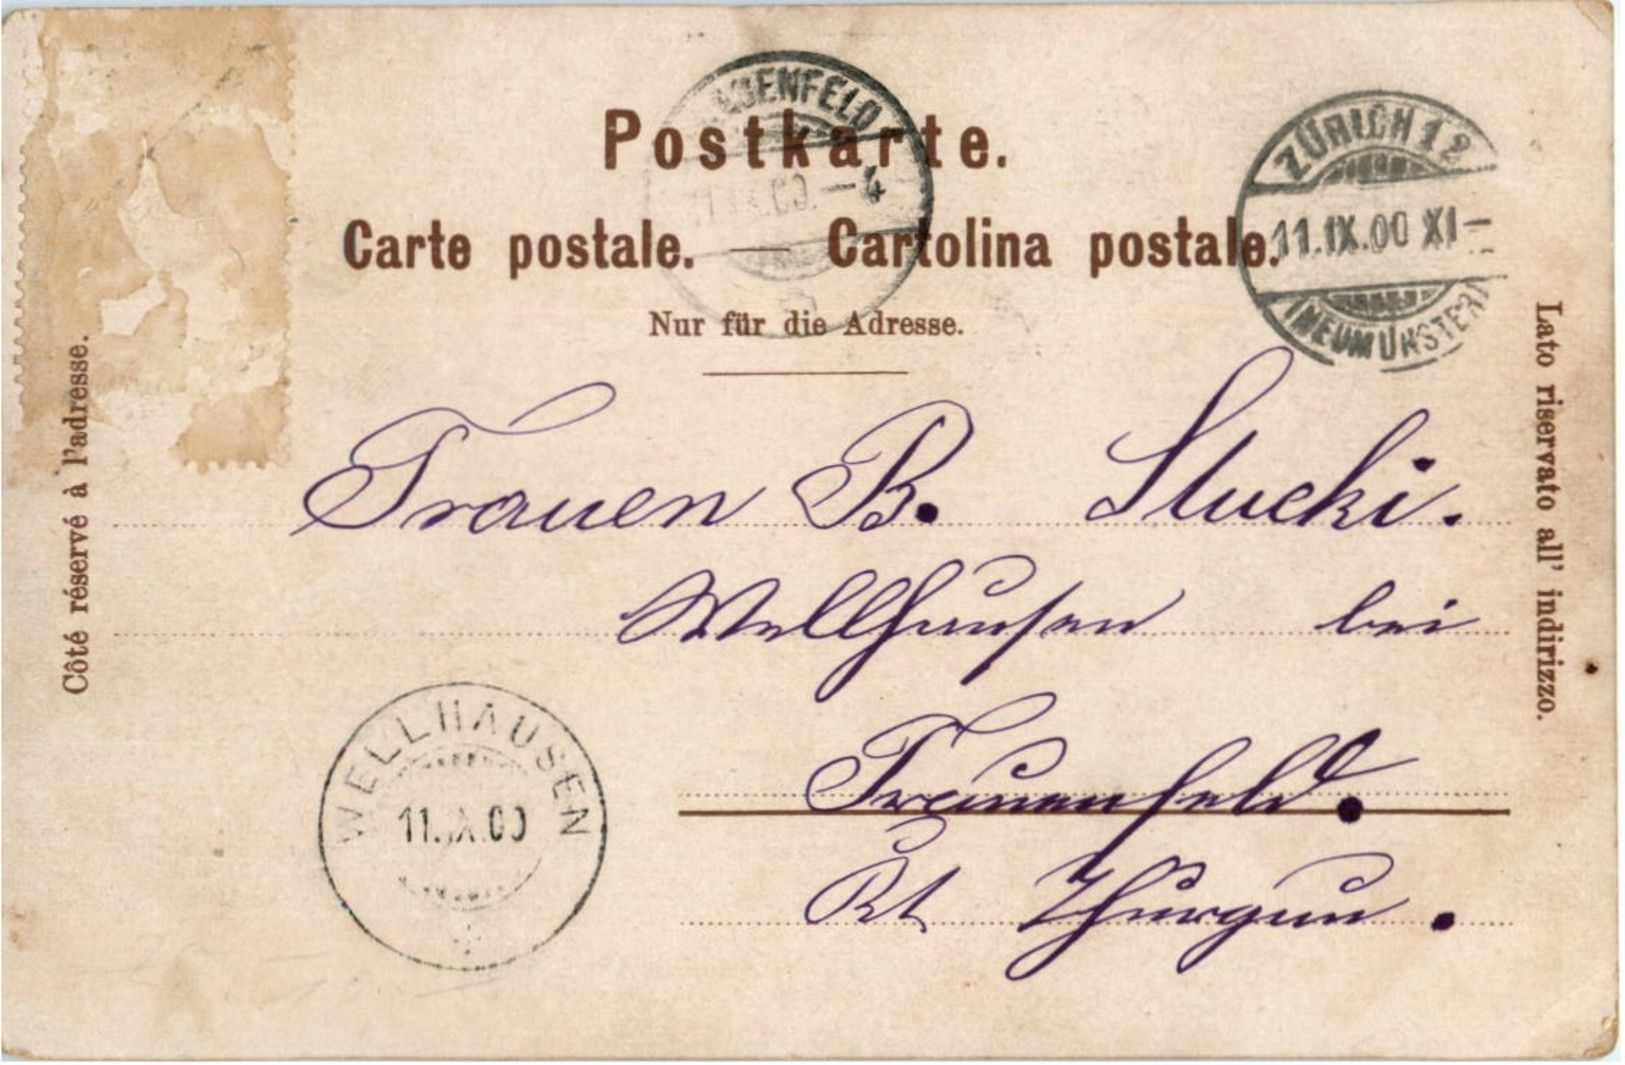 Postkarte.
Carte postale. — Cartolina postale.
Nur für die Adresse.
Côté réservé à l'adresse.
Lato riservato all' indirizzo.
ZÜRICH 12
11.IX.00 XI-
(NEUMÜNSTER)
Frauen B. Stucki.
Wellhausen bei
Frauenfeld.
Kt Thurgau.
WELLHAUSEN
11.IX.00